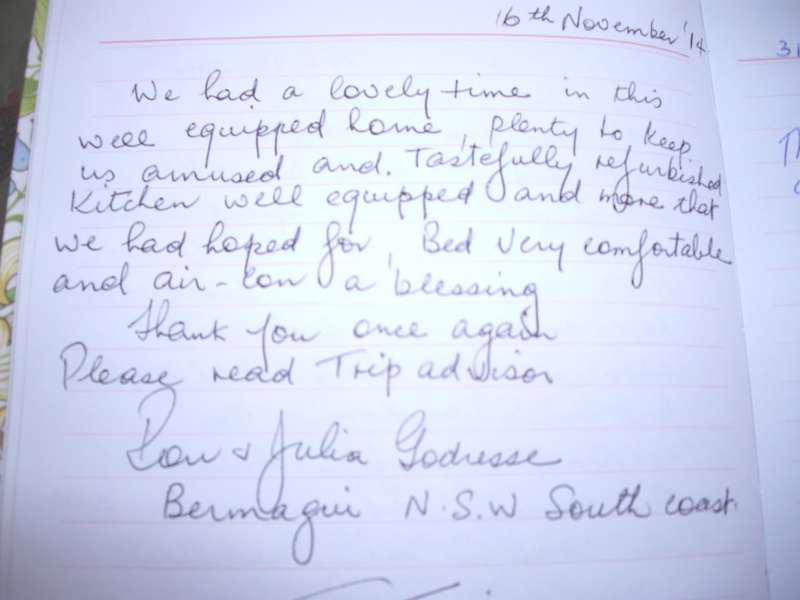 16th November '14
We had a lovely time in this
well equipped home, plenty to keep
us amused and. Tastefully refurbished
Kitchen well equipped and more that
we had hoped for, Bed very comfortable
and air-con a blessing
Thank you once again
Please read Trip advisor
& Julia Godresse
Bermagui N.S.W South coast.
31